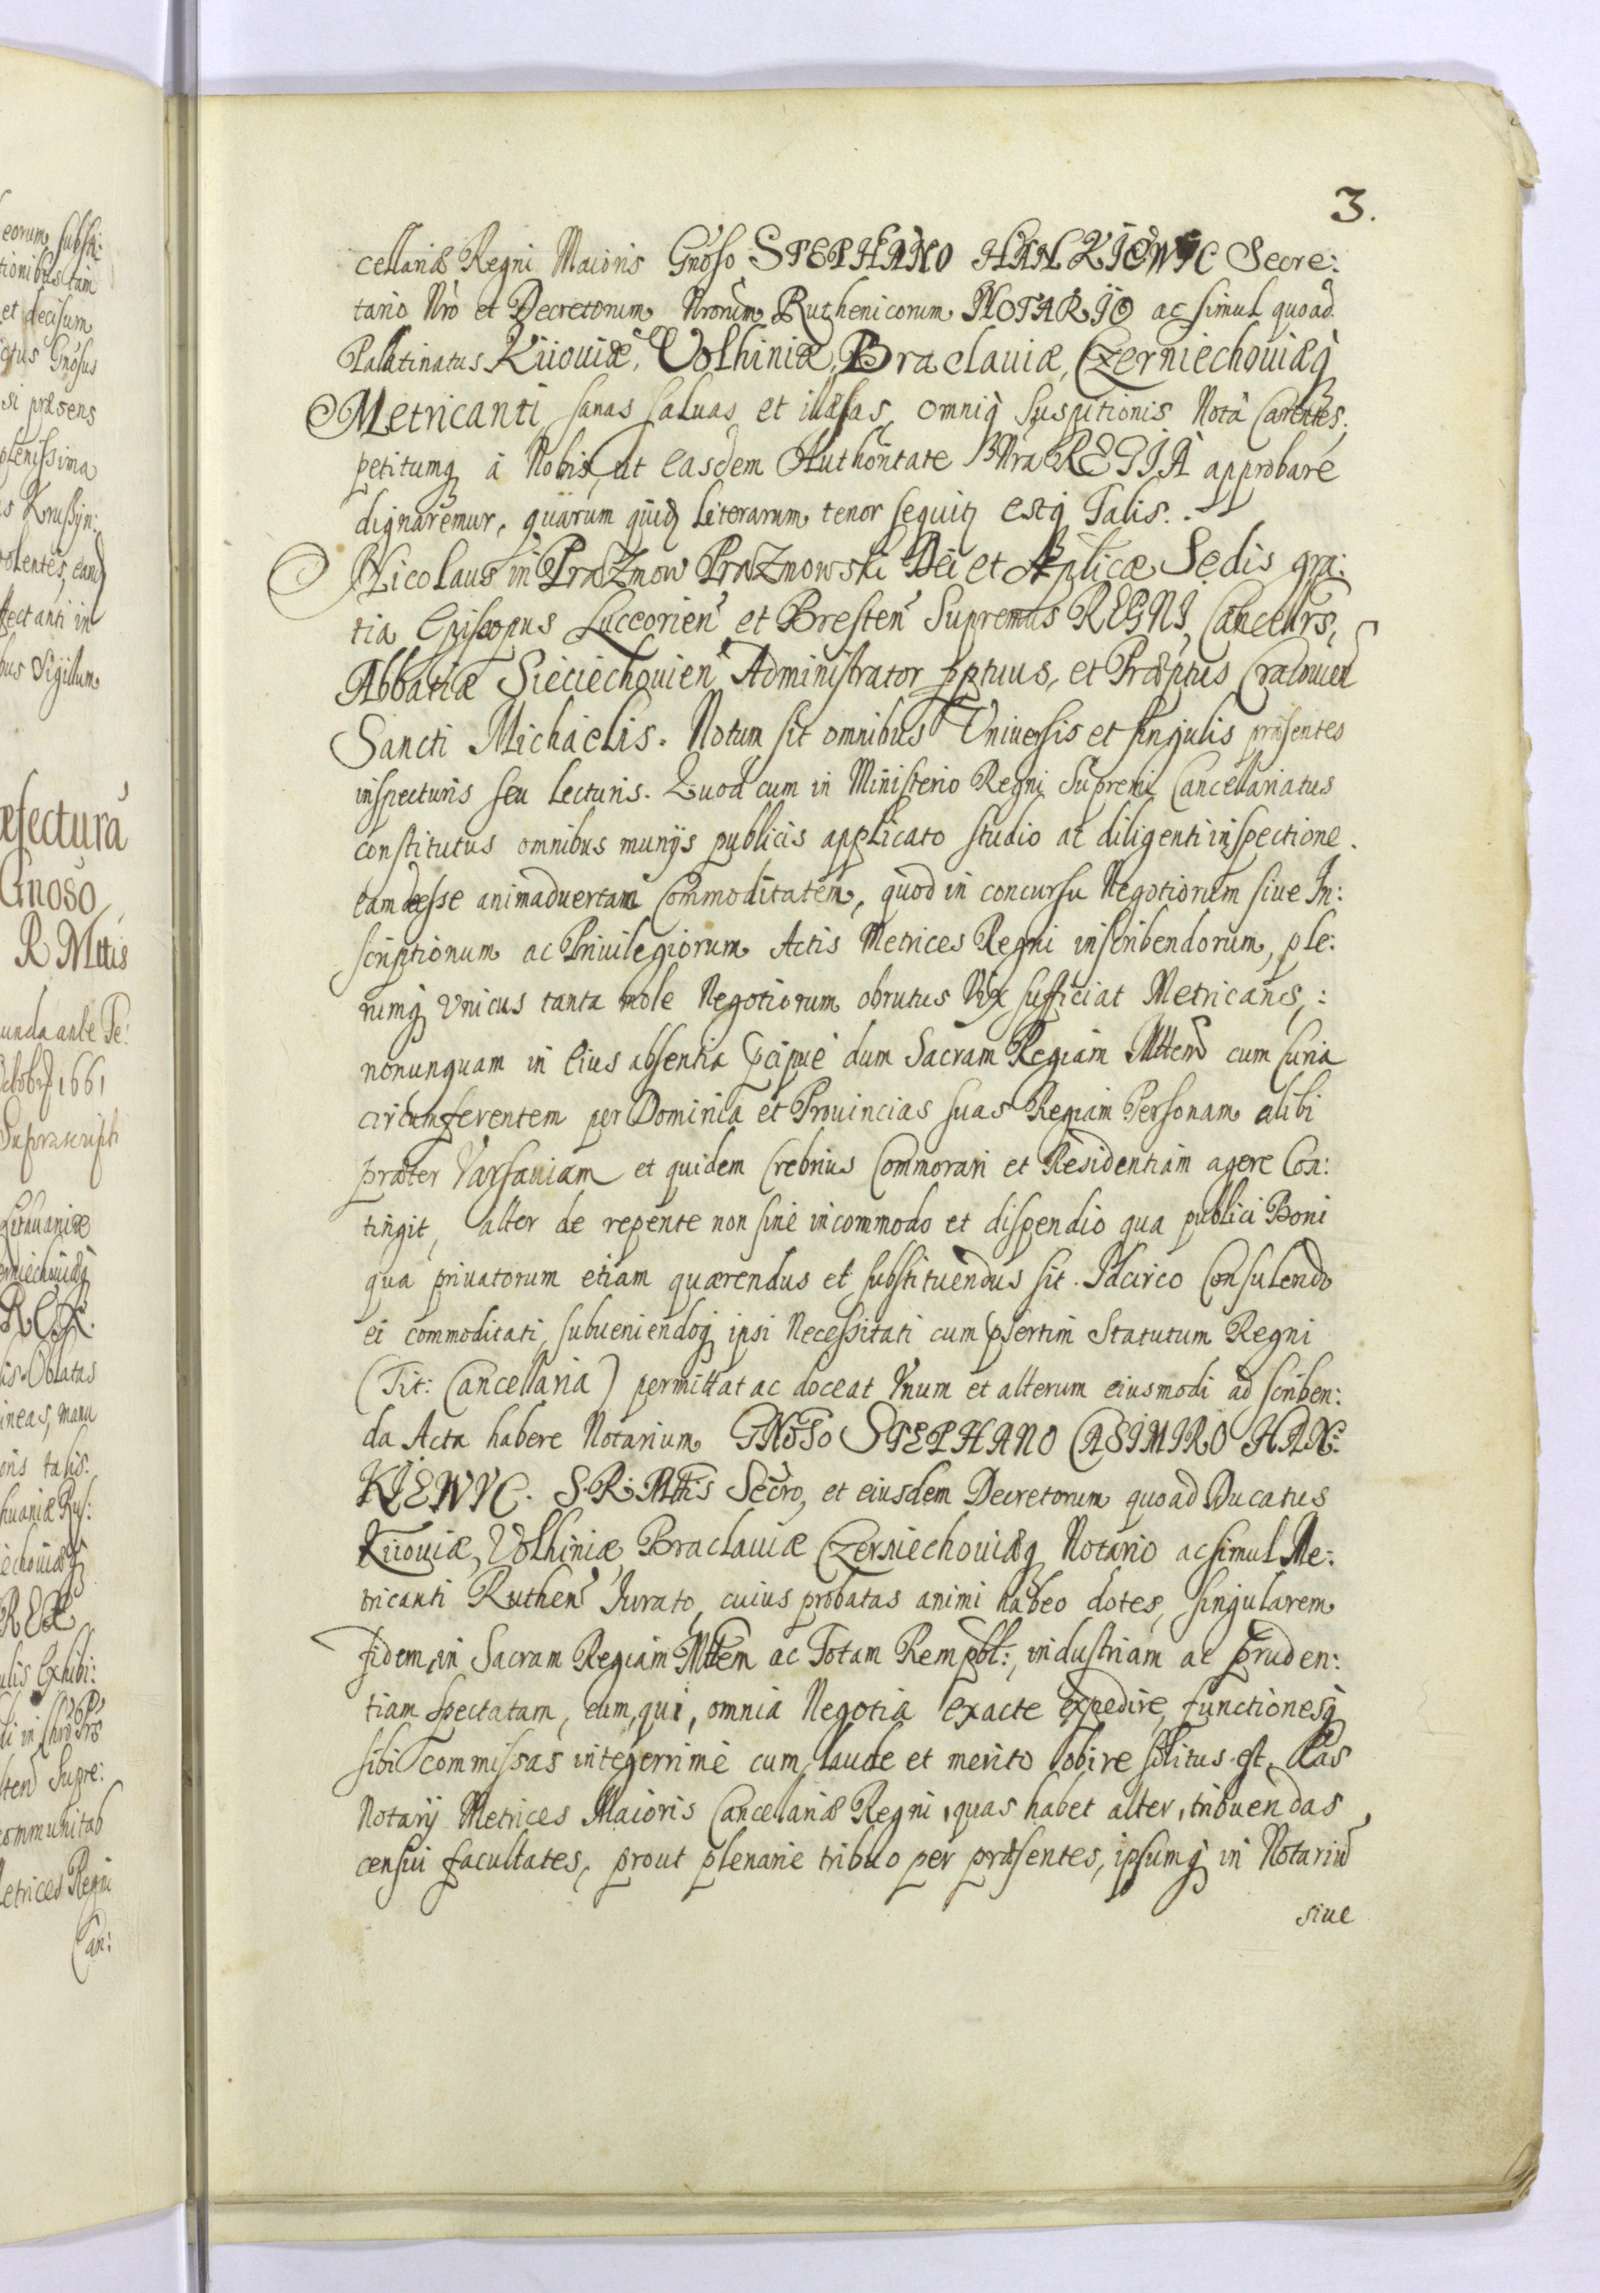 3.
cellariæ Regni Maioris Gnoso STEPHANO HANKIEWIC Secre:
tario Nro et Decretorum Nrorum Ruthenicorum NOTARIO ac simul quoad
Palatinatus Kiiouiæ, Volhiniæ, Braclauiæ, Czerniechouiæq
Metricanti sanas saluas et illæsas, omniq suspitionis Notâ Carentes,
petitumq à Nobis, ut easdem Authoritate Nra REGIA approbare
dignaremur, quarum quid Literarum tenor sequit estq Talis.
Nicolaus in Prazmow Prazmowski Dei et Aplicæ Sedis gra:
tia Episcopus Luceorien et Bresten Supremus REGNI Cancellrs,
Abbatiæ Sieciechouien Administrator pptuus, et Præptus Cracouien
Sancti Michaelis. Notum sit omnibus Vniuersis et singulis præsentes
inspecturis seu lecturis. Quod cum in Ministerio Regni Supremi Cancellariatus
constitutus omnibus munijs publicis applicato studio ac diligenti inspectione
eam adesse animaduertam Commoditatem, quod in concursu Negotiorum siue In:
scriptionum ac Priuilegiorum Actis Metrices Regni inscribendorum, ple:
rumq vnicus tanta mole Negotiorum obrutus Vix sufficiat Metricans,:
nonunquam in eius absentia pcipue dum Sacram Regiam Mttem cum Curia
circumferentem per Dominia et Prouincias suas Regiam Personam alibi
præter Varsauiam et quidem Crebrius Commorari et Residentiam agere Con:
tingit, alter de repente non sine incommodo et dispendio qua publici Boni
qua priuatorum etiam quærendus et substituendus sit. Idcirco Consulendo
ei commoditati, subueniendoq ipsi Necessitati cum psertim Statutum Regni
(Tit: Cancellaria) permittat ac doceat Vnum et alterum eiusmodi ad scriben:
da Acta habere Notarium GNOSO STEPHANO CASIMIRO HAN:
KIEWIC. S.R. Mttis Secro, et eiusdem Decretorum quoad Ducatus
Kiiouiæ, Volhiniæ Braclauiæ Czerniechouiæq Notario ac simul Me:
tricanti Ruthen Iurato, cuius probatas animi habeo dotes, singularem
fidem, in Sacram Regiam Mttem ac Totam Rempbl:, industriam ac pruden:
tiam spectatam, eum, qui, omnia Negotia exacte expedire, functionesq
sibi commissas integerrimè cum laude et merito obire solitus est, Eas
Notarij Metrices Maioris Cancellariæ Regni, quas habet alter, tribuendas
censui facultates, prout plenarie tribuo per præsentes, ipsumq in Notariu
siue